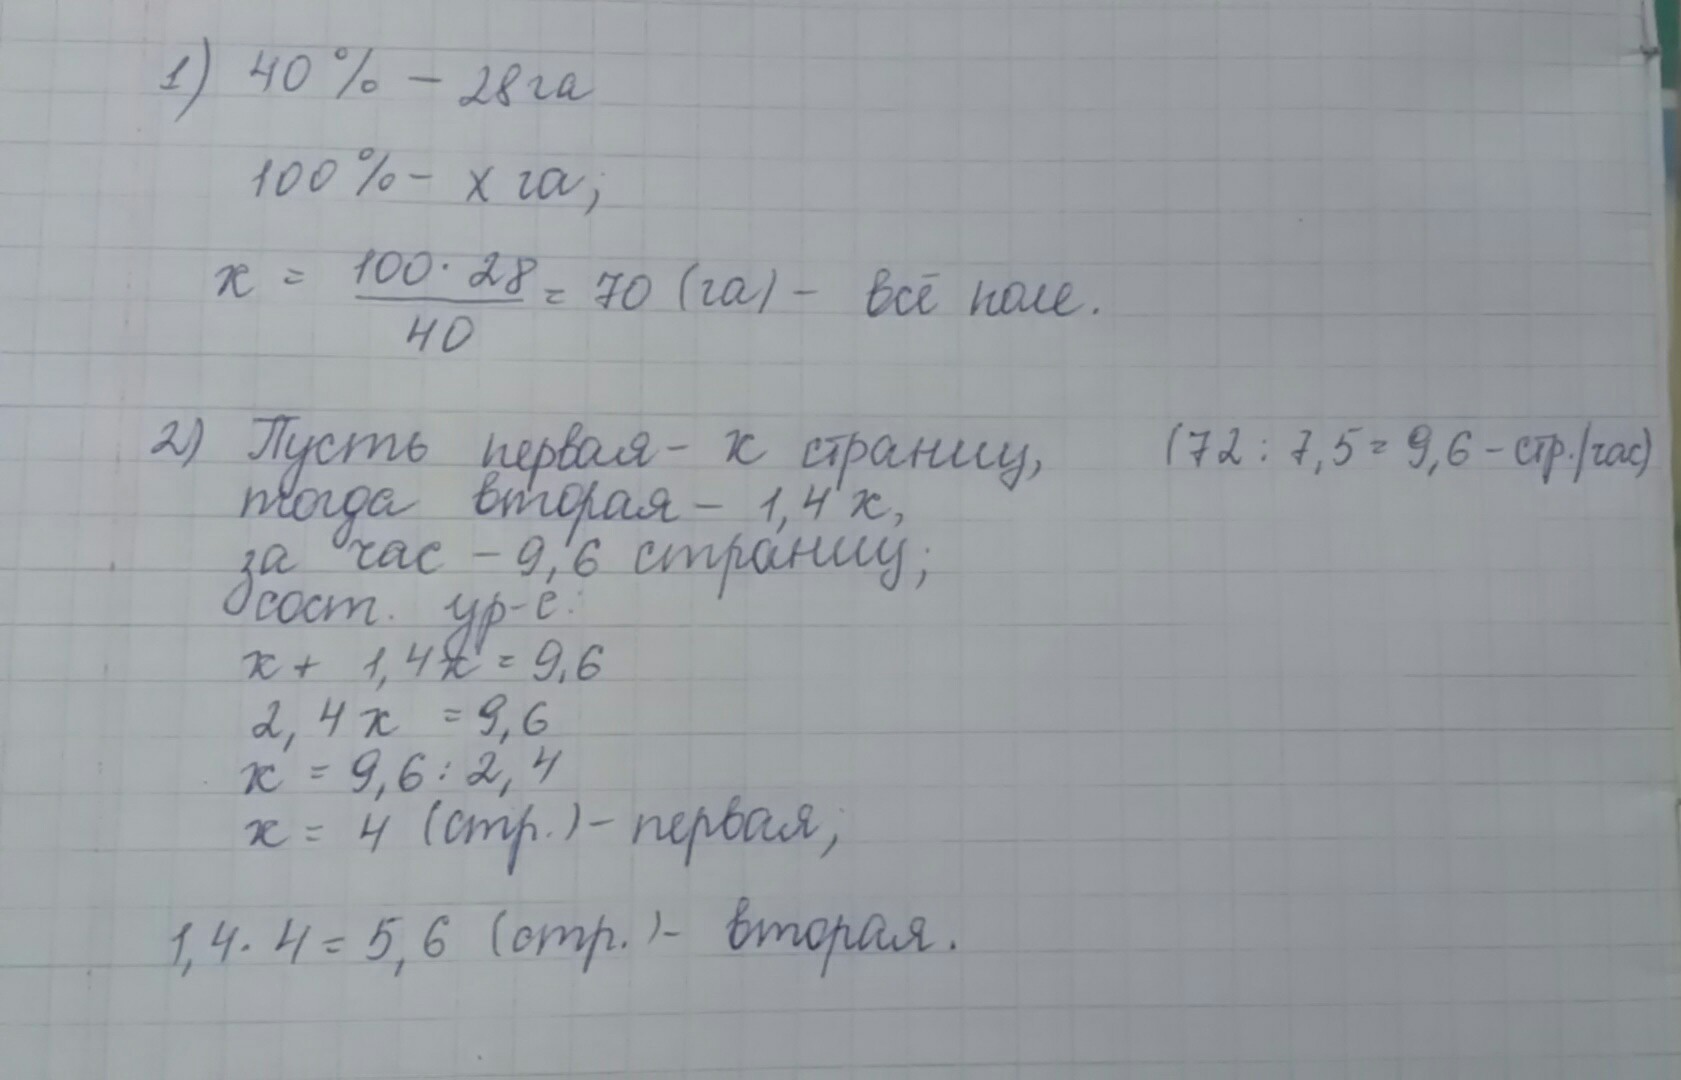 1) 40% - 28га
100% - х га;
х = 100 · 28 / 40 = 70 (га) - всё поле.
2) Пусть первая - х страниц, (72 : 7,5 = 9,6 - стр./час)
тогда вторая - 1,4х,
за час - 9,6 страниц;
сост. ур-е:
х + 1,4х = 9,6
2,4х = 9,6
х = 9,6 : 2,4
х = 4 (стр.) - первая;
1,4 · 4 = 5,6 (стр.) - вторая.